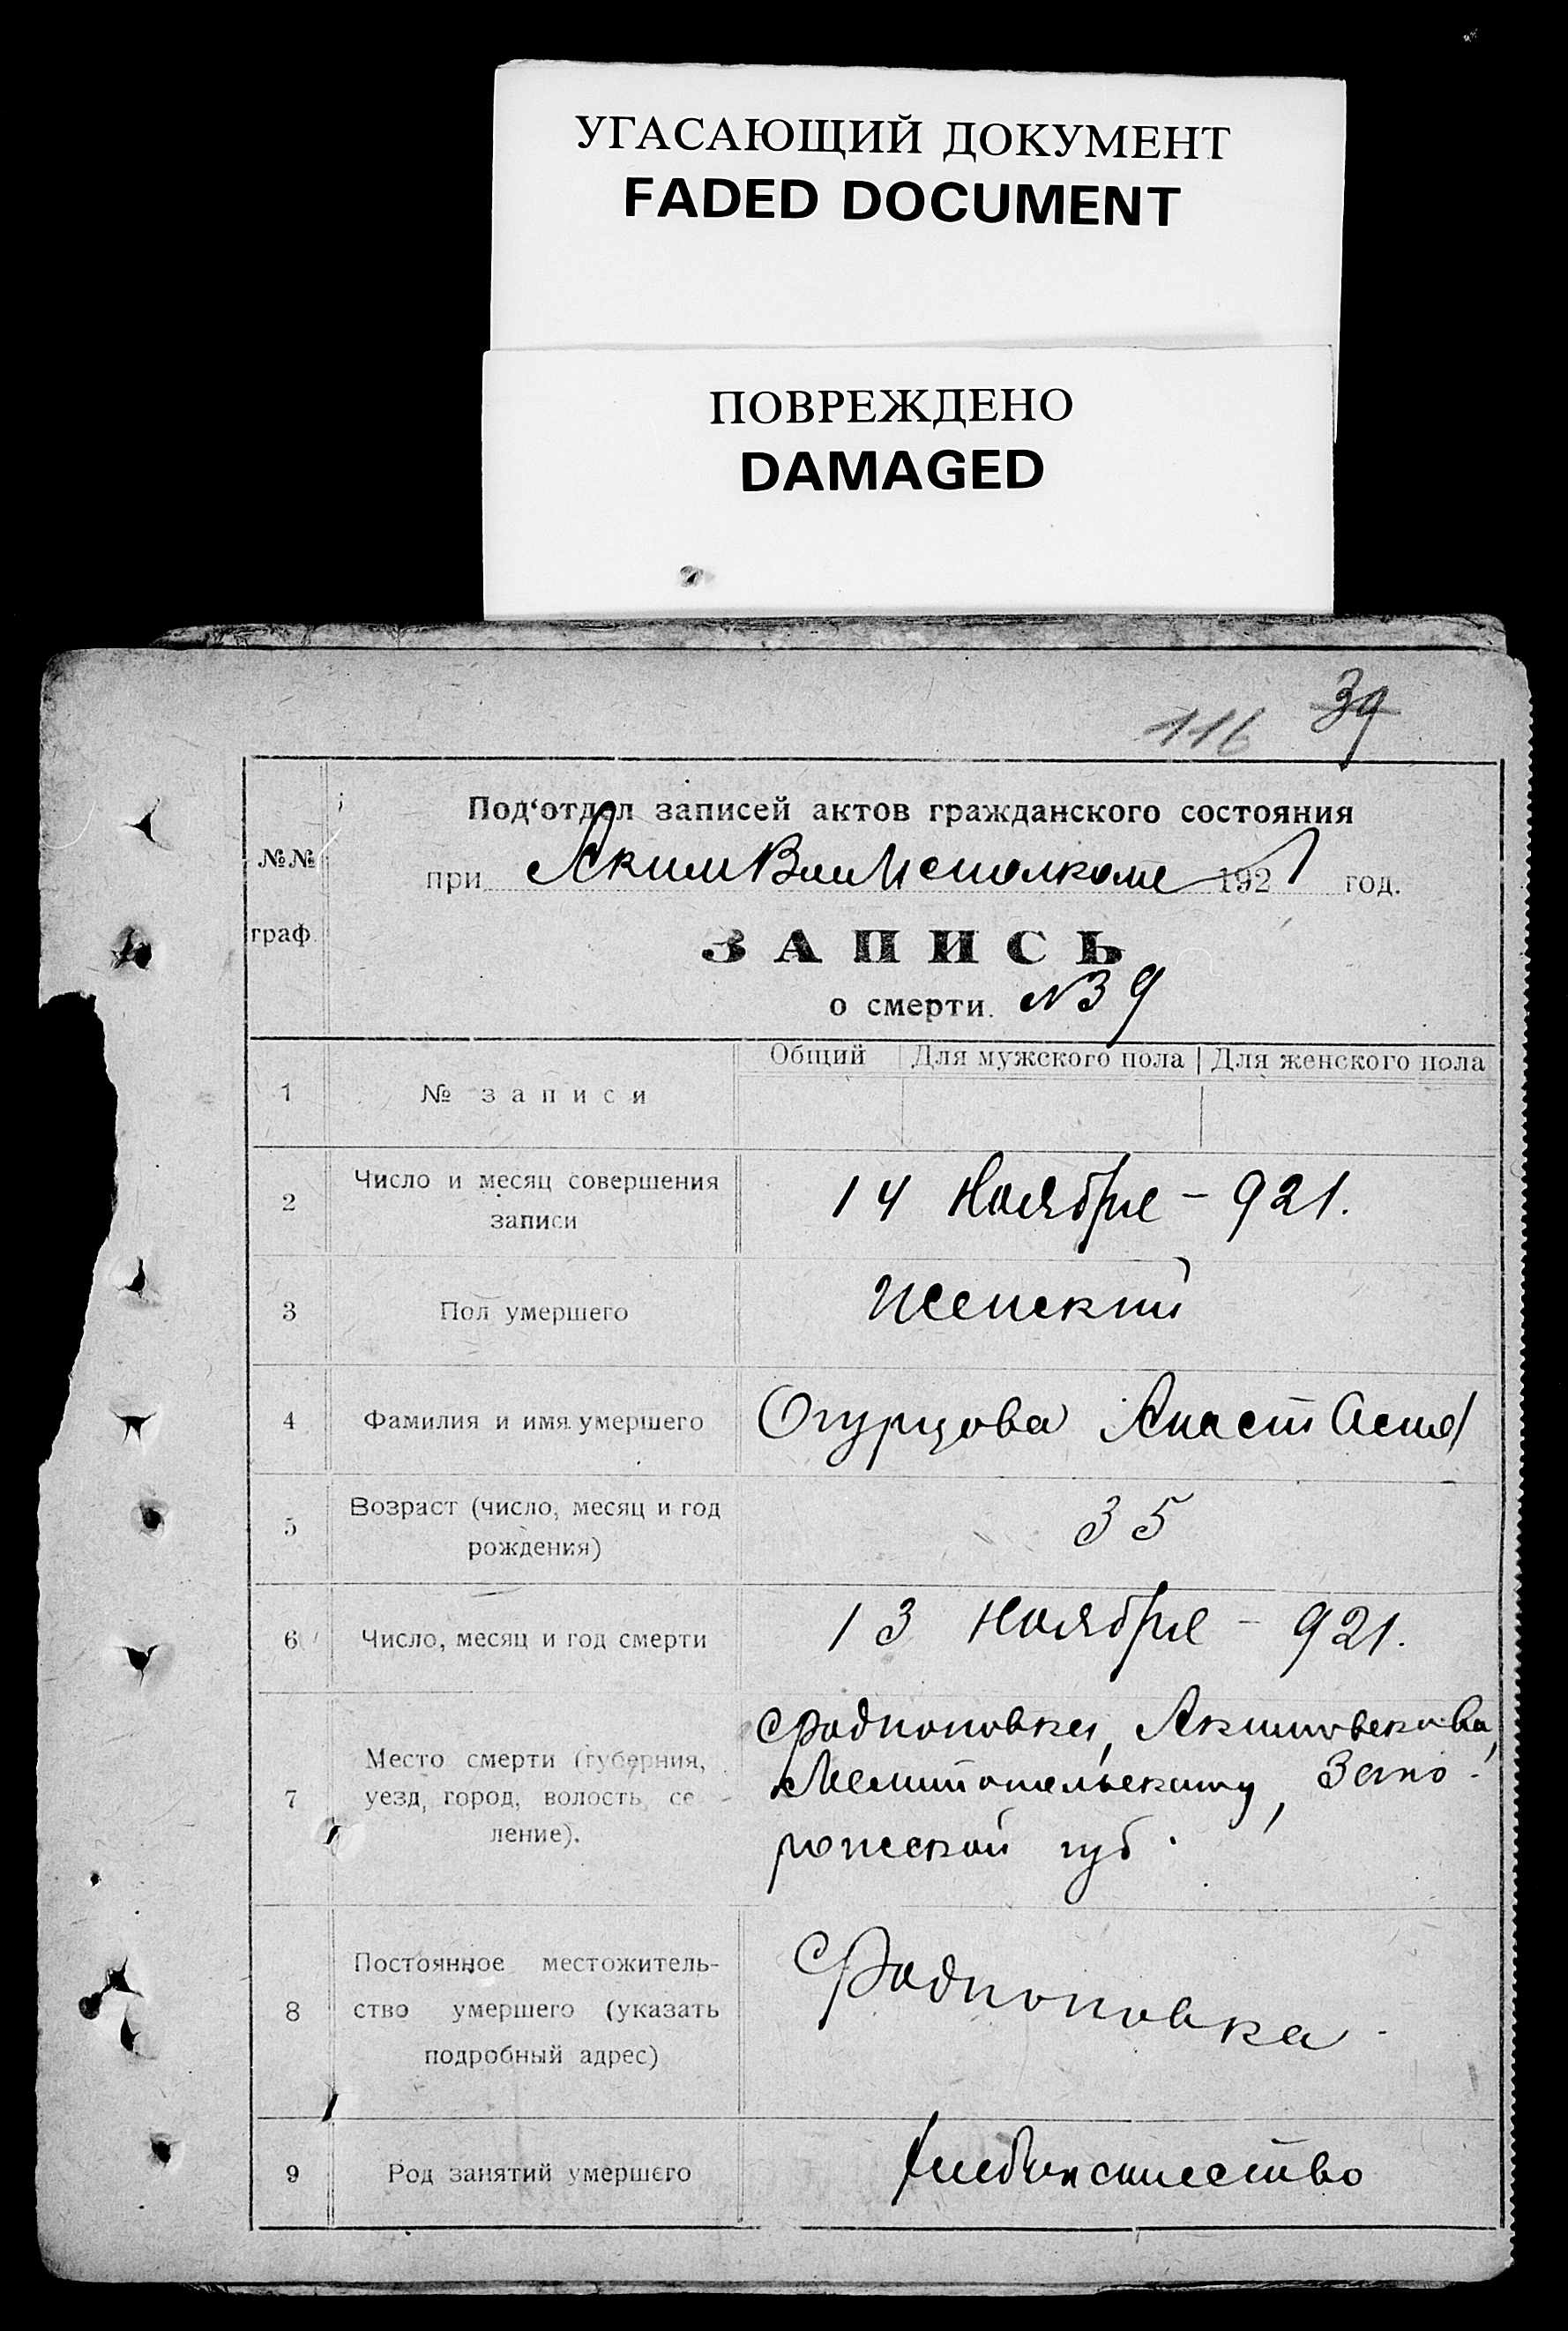 УГАСАЮЩИЙ ДОКУМЕНТ
FADED DOCUMENT
ПОВРЕЖДЕНО
DAMAGED
116 39
№№ граф.
Под‘отдел записей актов гражданского состояния
при АкимВолИсполкоме 1921 год.
ЗАПИСЬ
о смерти. №39
Общий Для мужского пола Для женского пола
1 № записи
2 Число и месяц совершения
записи
14 Ноября - 921.
3 Пол умершего Женский
4 Фамилия и имя умершего Огурцова Анастасия
5 Возраст (число, месяц и год
рождения)
35
6 Число, месяц и год смерти 13 Ноября - 921.
7 Место смерти (губерния,
уезд, город, волость, се-
ление).
с Родионовка, Акимовской в,
Мелитопольского у, Запо-
рожской губ.
8 Постоянное местожитель-
ство умершего (указать
подробный адрес)
с Родионовка
9 Род занятий умершего Хлебопашество